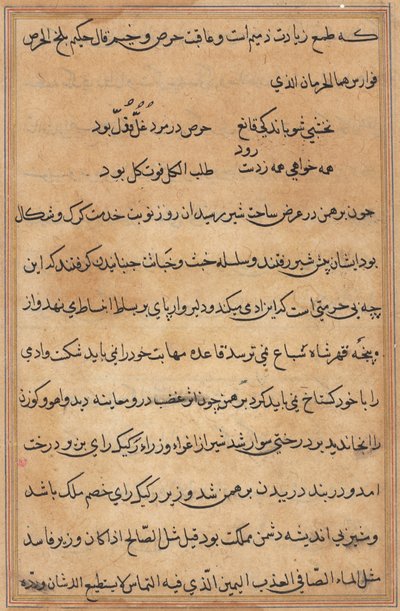 که طمع زیارت ذمیم است و عاقبت حرص وخیم قال حکیم بلخ الحرص
فوارس هما الحرمان الذی
نخشبی شو باندکی قانع حرص در مرد غل و قل بود
رود
همه خواهی همه زدست طلب الکل فوت کل بود
چون برهمن در عرض ساحت شیر رسید آن روز نوبت خدمت کرک و شکال
بود ایشان پیش شیر رفتند و سلسله خبث و خباثت جنبانیدن کرفتند که این
چه بی حرمتی است که این ادمی میکند و دلیروار پای بر بساط انبساط می نهد و از
پنجه قهر شاه سباع نمی ترسد قاعده مهابت خود را نمی باید شکست و ادمی
را با خود کستاخ نمی باید کرد برهمن چون اثر غضب در و معاینه دید و اهو و کوزن
را انجا ندید بر درختی سوار شد شیر از اغراء وزراء رکیک رای بن درخت
امد و در بند دریدن برهمن شد وزیر رکیک رای خصم ملک باشد
و مشیر بی اندیشه دشمن مملکت بود قیل مثل الصالح اذا کان وزیر فاسد
مثل الماء الصافی العذب الیمین الذی فیه التماس لا یستطیع الانسان وروده